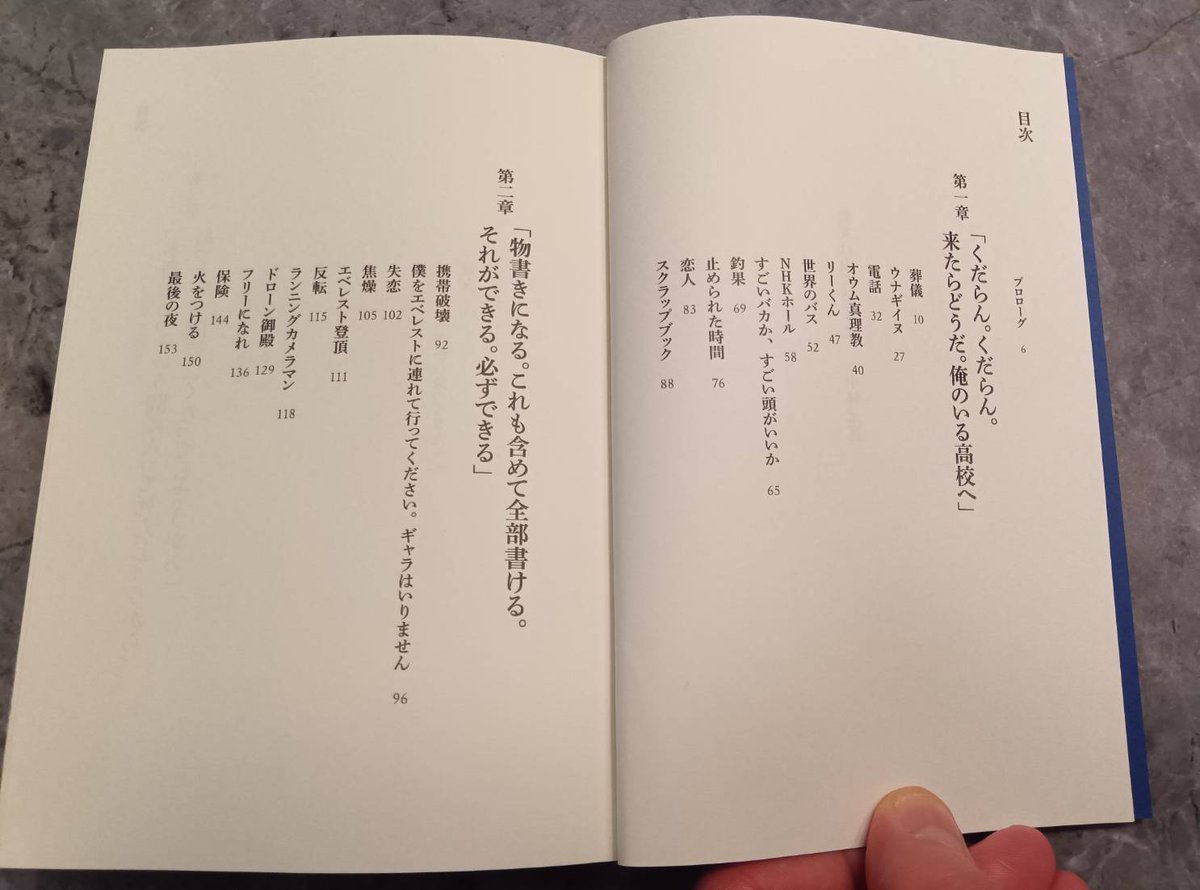 目次
プロローグ 6
第一章 「くだらん。くだらん。
来たらどうだ。俺のいる高校へ」
葬儀 10
ウナギイヌ 27
電話 32
オウム真理教 40
リーくん 47
世界のバス 52
NHKホール 58
すごいバカか、すごい頭がいいか 65
釣果 69
止められた時間 76
恋人 83
スクラップブック 88
第二章 「物書きになる。これも含めて全部書ける。
それができる。必ずできる」
携帯破壊 92
僕をエベレストに連れて行ってください。ギャラはいりません 96
失恋 102
焦燥 105
エベレスト登頂 111
反転 115
ランニングカメラマン 118
ドローン御殿 129
フリーになれ 136
保険 144
火をつける 150
最後の夜 153